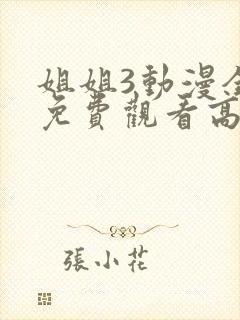 姐姐3動漫
免費觀看高
張小花